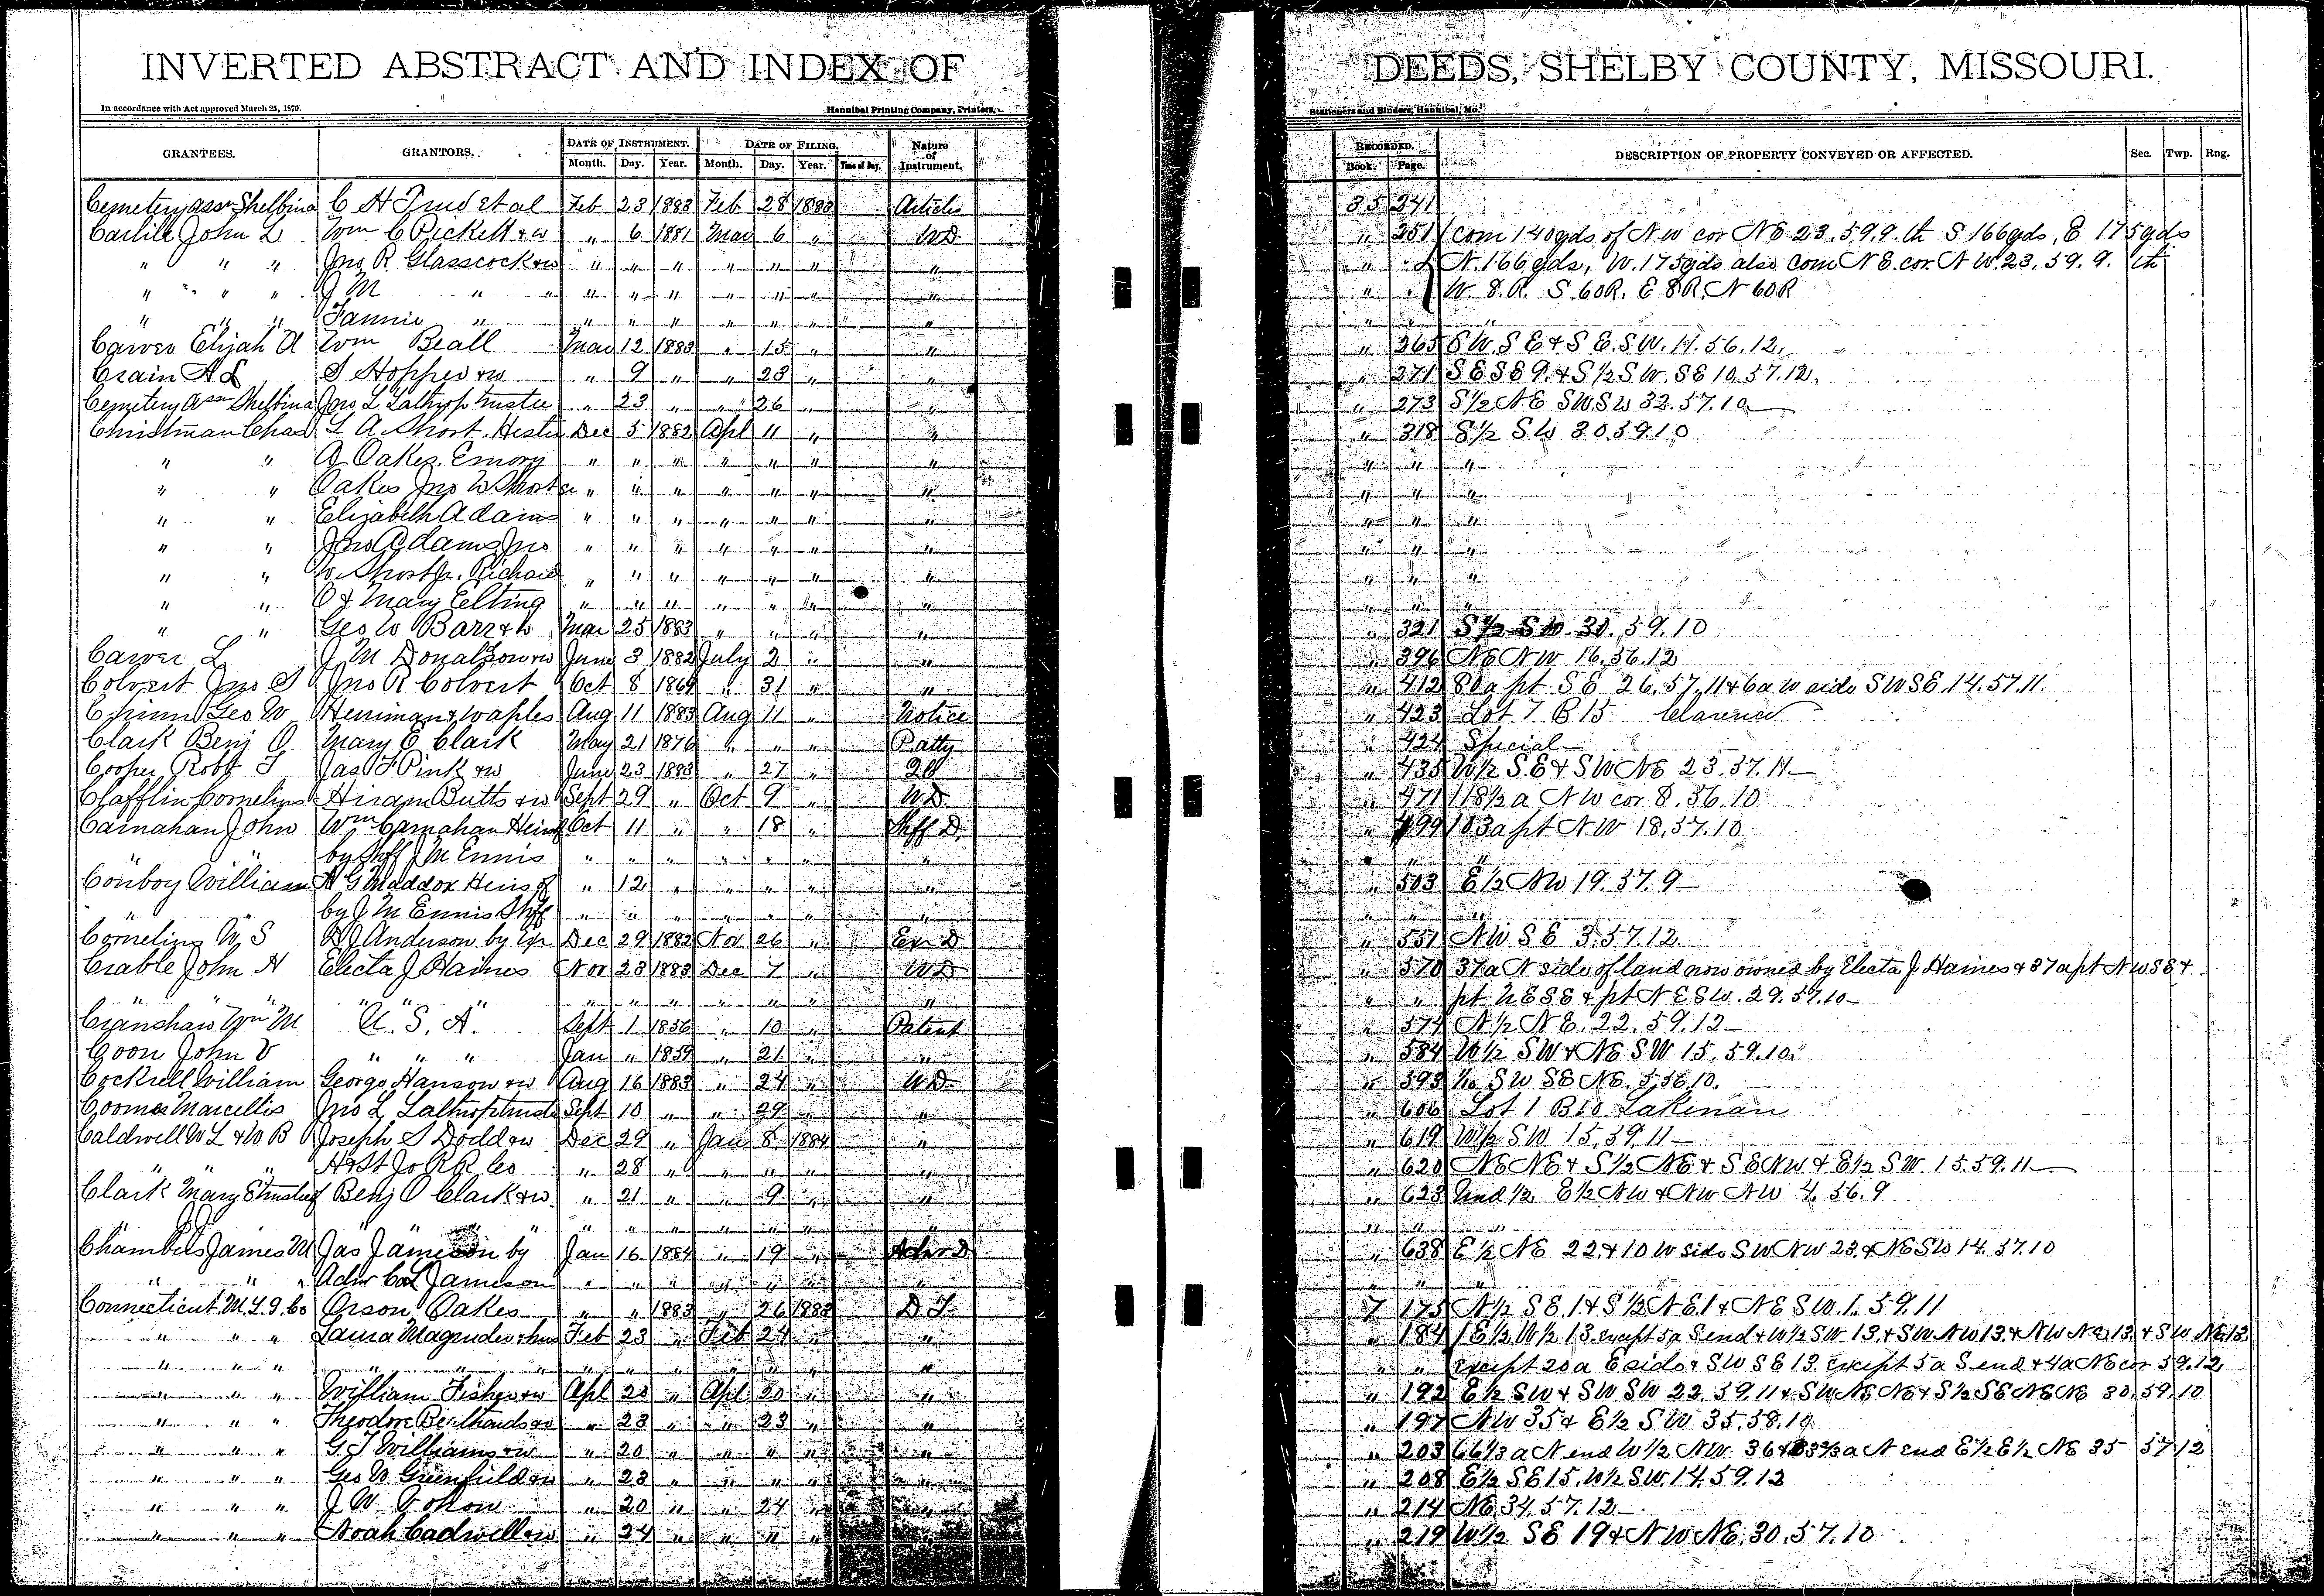 INVERTED ABSTRACT AND INDEX OF DEEDS, SHELBY COUNTY, MISSOURI.
In accordance with Act approved March 25, 1870. Hannibal Printing Company, Printers, Stationers and Binders, Hannibal, Mo.
GRANTEES. GRANTORS. DATE OF INSTRUMENT. Month. Day. Year. DATE OF FILING. Month. Day. Year. Time of Day. Nature of Instrument. RECORDED. Book. Page. DESCRIPTION OF PROPERTY CONVEYED OR AFFECTED. Sec. Twp. Rng.
Cemetery assn Shelbina C H Trud et al Feb 23 1883 Feb 28 1883 Articles 35 241
Carlile John L Wm C Pickett & w " 6 1881 Mar 6 " WD " 251 Com 140yds of NW cor NE 23.59.9. th S 166yds, E 175yds
" " " Jno R Glasscock & w " " " " " " " " " N. 166yds, W. 175yds also Com NE. cor. NW. 23. 59. 9. th
" " " J M " " " " " " " " " " " W. 8.R. S. 60R. E 8R. N 60R
" " " Fannie " " " " " " " " " " "
Carver Elijah A Wm Beall Mar 12 1883 " 15 " " " 265 SW. SE & SE. SW. 11. 56. 12.
Crain A L S Hopper & w " 9 " " 23 " " " 271 SE SE 9. & S 1/2 SW. SE 10. 57. 12.
Cemetery assn Shelbina Jno L Lathrop trustee " 23 " " 26 " " " 273 S 1/2 NE SW SW 32. 57. 10
Christman Chas L A Short. Hester Dec 5 1882 Apl 11 " " " 318 S 1/2 SW 30.59.10
" " A Oakes. Emory " " " " " " " " " "
" " Oakes Jno W Short " " " " " " " " " "
" " Elizabeth Adams " " " " " " " " " "
" " Jno Adams, Jno " " " " " " " " " "
" " W. Short Jr. Richard " " " " " " " " " "
" " O & Mary Elting " " " " " " " " " "
" " Geo W Barr & w Mar 25 1883 " " " " " 321 S 1/2 SW. 30. 59. 10
Carver L J M Donalson & w June 3 1882 July 2 " " " 396 NE NW 16. 56. 12
Colvert Jno S Jno R Colvert Oct 8 1869 " 31 " " " 412 80a pt SE 26. 57. 11 & 6a W side SW SE. 14. 57. 11.
Chinn Geo W Herriman & Waples Aug 11 1883 Aug 11 " Notice " 423 Lot 7 B 15 Clarence
Clark Benj O Mary E Clark May 21 1876 " " " P atty " 424 Special
Cooper Robt T Jas T Pink & w June 23 1883 " 27 " " 435 W 1/2 SE & SW NE 23. 57. 11
Clafflin Cornelius Hiram Butts & w Sept 29 " Oct 9 " WD " 471 118 1/2 a NW cor 8. 56. 10
Carnahan John Wm Carnahan Heirs of Oct 11 " " 18 " Shff D " 499 103a pt NW 18. 57. 10
" " by Shff J M Ennis " " " " " " " " " "
Conboy William A G Maddox Heirs of " 12 " " " " " " 503 E 1/2 NW 19. 57. 9
by J M Ennis Shff " " " " " " " " "
Cornelius W S D J Anderson by Exr Dec 29 1882 Nov 26 " Exr D " 551 NW SE 3. 57. 12
Crable John H Electa J Haines Nov 23 1883 Dec 7 " WD " 570 37a N side of land now owned by Electa J Haines & 37a pt NW SE &
" " " " " " " " " " " " " " pt NE SE & pt NE SW. 29. 57. 10
Cranshaw Wm M U. S. A. Sept 1 1856 " 10 " Patent " 574 N 1/2 NE. 22. 59. 12
Coon John V " " " Jan " 1859 " 21 " " " 584 W 1/2 SW & NE SW 15. 59. 10.
Cockrell William George Hanson & w Aug 16 1883 " 24 " WD " 593 SW SE NE. 5. 56. 10.
Coomes Marcellis Jno L Lathrop trustee Sept 10 " " 29 " " " 606 Lot 1 B 10 Lakenan
Caldwell W L & W B Joseph S Dodd & w Dec 29 " Jan 8 1884 " " 619 W 1/2 SW 15. 59. 11
" " " H & St Jo RR Co " 28 " " " " " " 620 NE NE & S 1/2 NE & SE NW & E 1/2 SW. 15. 59. 11
Clark Mary E trustee of Benj O Clark & w " 21 " " 9 " " " 623 Und 1/2 E 1/2 NW & NW NW 4. 56. 9
" " " " " " " " " " " " "
Chambers James M Jas Jameson by Jan 16 1884 " 19 " Admr D " 638 E 1/2 NE 22 & 10 W side SW NW 23. & NE SW 14. 57. 10
" " " Admr Jameson " " " " " " " " " "
Connecticut M. L. I. Co Orson Oakes " " 1883 " 26 1883 D T 7 175 N 1/2 SE. 1 & S 1/2 NE 1 & NE SW. 1. 59. 11
" " " Laura Magruder & hus Feb 23 " Feb 24 " " " 184 E 1/2 W 1/2 13. except 5a S end & W 1/2 SW. 13. & SW NW 13. & NW NE 13. & SW NE 13.
" " " " " " " " " " " " " " " except 20a E side & SW SE 13. except 5a S end & 4a NE cor 59.12
" " " William Fisher & w Apl 20 " Apl 20 " " " 192 E 1/2 SW & SW SW 22. 59. 11 & SW NE NE & S 1/2 SE NE NE 30. 59. 10
" " " Theodore Berthands & w " 23 " " 23 " " " 197 NW 35 & E 1/2 SW 35. 58. 10
" " " G T Williams & w " 20 " " " " " " 203 66 1/3 a N end W 1/2 NW. 36 & 33 1/3 a N end E 1/2 E 1/2 NE 35 57 12
" " " Geo W Greenfield & w " 23 " " " " " " 208 E 1/2 SE 15. W 1/2 SW. 14. 59. 12
" " " J W " 20 " " 24 " " " 214 NE 34. 57. 12
" " " Noah Cadwell & w " 24 " " " " " " 219 W 1/2 SE 19 & NW NE. 30. 57. 10